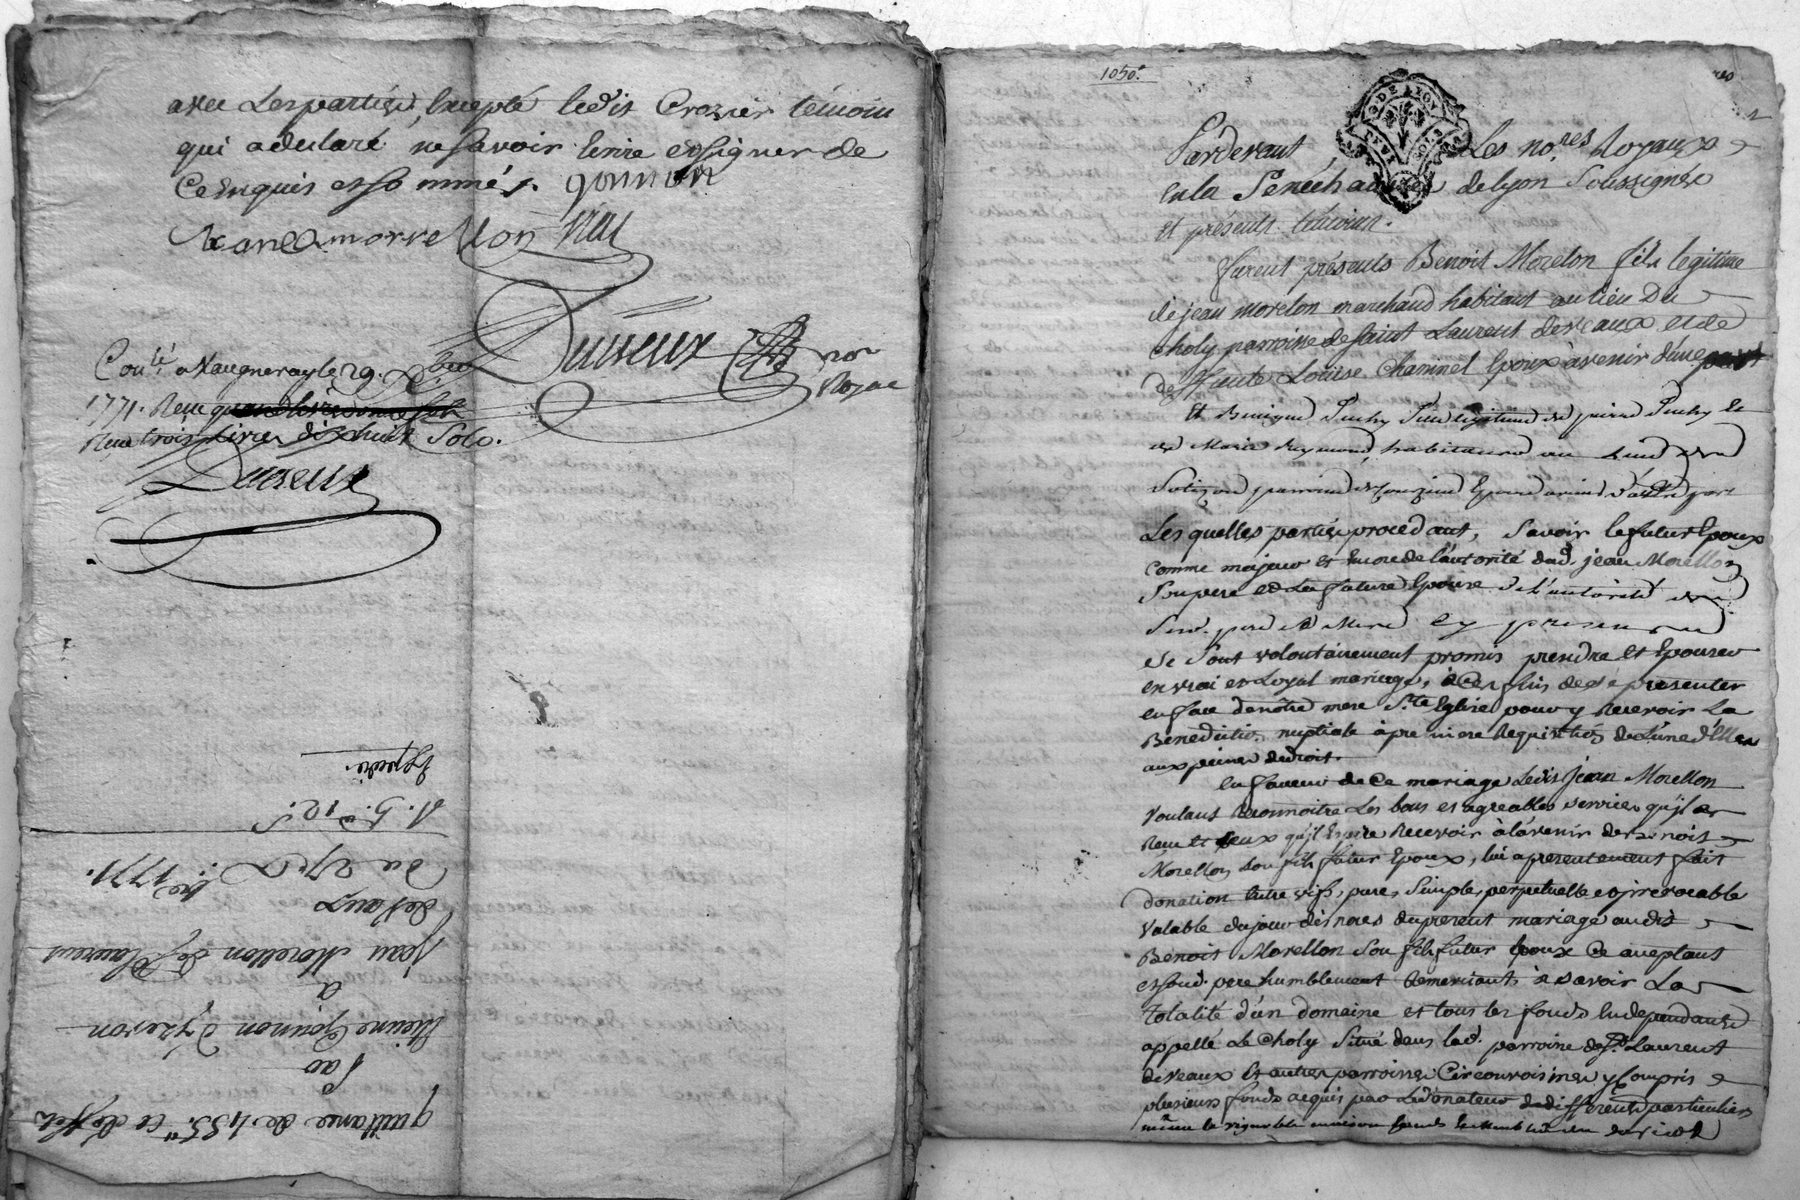 avec Les parties, Excepté ledit Crozier témoin
qui a déclaré ne Savoir Ecrire et Signer de
Ce Enquis et so mmé ./. gonnon
Jean morrellon
Dusseux nore
Royal
Conlé a Vaugneray le 29. Xbre
1771. Reçu
Reçu trois livres dix huit Sols.
Dusseux
Expediée
1771.
du 27e Xbre 1771.
devaux
jean Morellon de St laurent
a
Etienne Gonnon d'yzeron
Par
quittance de 455.ll Et d'effets
1050e
G. DE LYON
Pardevant, Les no.res Royaux
en la Sénéchaussée de lyon Soussignés
et présents temoins.
furent présents Benoit Morelon fils legitime
de jean morelon marchand habitant au lieu Du
Choly parroisse de Saint Laurent de Vaux et de
deffunte Louise Charinel Epoux à venir d'une part
Et Benigne fille legitime de pierre et
de Marie Reymond, habitants au Lieu de
parroisse de Epouse avenir d'autre part
Les quelles parties procedant, Savoir le futur Epoux
comme majeur et Encore de l'autorité dud. jean Morellon
Son pere et La future Epouse de L'autorité de
Sesd. pere et Mere cy presents
se Sont volontairement promis prendre et Epouser
en vrai et Loyal mariage, à Ces fins de se presenter
en face de nôtre mere Ste Eglise pour y Recevoir La
Benediction nuptiale à premiere Requisition de L'une d'Elles
aux peines de droit.
En faveur de Ce mariage Ledit Jean Morellon
Voulant Reconnoitre Les bons et agreables services qu'il a
Reçu et Ceux qu'il Espere Recevoir à l'avenir de Benoit
Morellon Son fils futur Epoux, lui a presentement fait
donation Entre vifs, pure, Simple, perpetuelle et irrevocable
Valable du jour des noces du present mariage audit
Benoit Morellon Son fils futur Epoux Ce acceptant
et sond. pere humblement Remerciant, à Savoir La
totalité d'un domaine et tous les fonds En dependants
appellé Le Choly Situé dans lad. parroisse de St. Laurent
de Vaux Et autres parroisses Circonvoisines y Compris
plusieurs fonds acquis par Led. donateur de differents particuliers
même le vignoble maison fonds